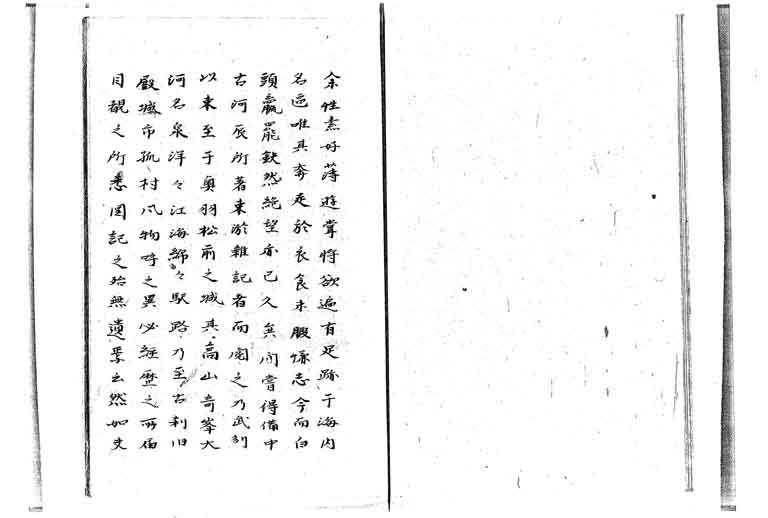 余性素好薄遊嘗将欲遍有足跡于海内
名區唯其奔走於衣食未暇慊志今而白
頭羸罷缺然絶望亦已久矣間嘗得備中
古河辰所著東游雑記者而閲之乃武刕
以東至于奥羽松前之城其高山奇峯大
河名泉洋々江海綿々駅路乃至古刹旧
殿城市孤村凡物時之異必経歴之所届
目覩之所悉図記之殆無遺栗云然如夫